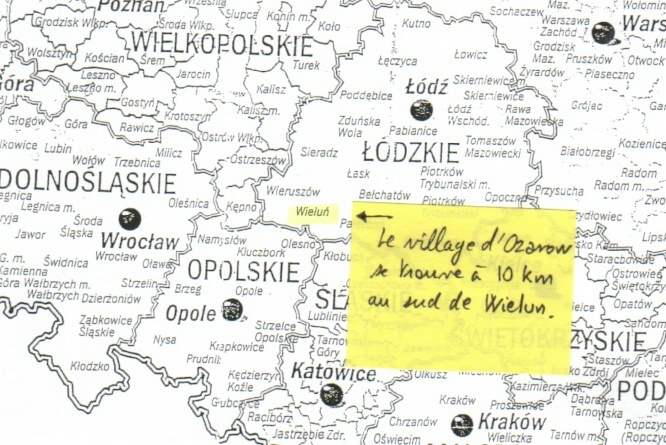 Poznań
Słupca
Konin m.
Koło
Kutno
Sochaczew
Warszawa
Zachód
Grodzisk Wlkp.
Środa Wlkp.
WIELKOPOLSKIE
Turek
Łęczyca
Łowicz
Grodzisk
Maz.
Pruszków
Otwock
Wolsztyn
Kościan
Śrem
Jarocin
Kalisz
Leszno
Leszno m.
Gostyń
Krotoszyn
Kalisz m.
Poddębice
Łódź
Skierniewice m.
Skierniewice
Żyrardów
Piaseczno
Głogów
Góra
Rawicz
Ostrów Wlkp.
Zduńska
Wola
Pabianice
Łódź
Wschód.
Rawa Maz.
Grójec
Lubin
Wołów
Trzebnica
Milicz
Ostrzeszów
Sieradz
ŁÓDZKIE
Tomaszów
Mazowiecki
Białobrzegi
Kozienice
DOLNOŚLĄSKIE
Oleśnica
Kępno
Wieruszów
Łask
Bełchatów
Piotrków
Trybunalski m.
Piotrków
Opoczno
Przysucha
Radom m.
Radom
Legnica m.
Legnica
Środa
Śląska
Jawor
Wrocław
Wieluń
Namysłów
Kluczbork
Olesno
Kłobuck
Świdnica
Wrocław
Oława
OPOLSKIE
Kamienna Góra
Wałbrzych m.
Wałbrzych
Dzierżoniów
Strzelin
Brzeg
Opole
Opole
Lubliniec
Ząbkowice
Śląskie
Nysa
Krapkowice
Strzelce
Opolskie
Prudnik
Tarn.
Góry
Kłodzko
Kędzierzyn
Koźle
Katowice
Olkusz
Głubczyce
Racibórz
Jastrzębie Zdr.
Chrzanów
Oświęcim
Kraków
Wieliczka
Kazimierza Wlk.
Dąbrowa
Tarnów m.
Starachowice
Ostrowiec
Świętokrz.
Opatów
Sandomierz
ŚWIĘTOKRZYSKIE
Staszów
Mielec
← Le village d'Ozarow
se trouve à 10 km
au sud de Wielun.